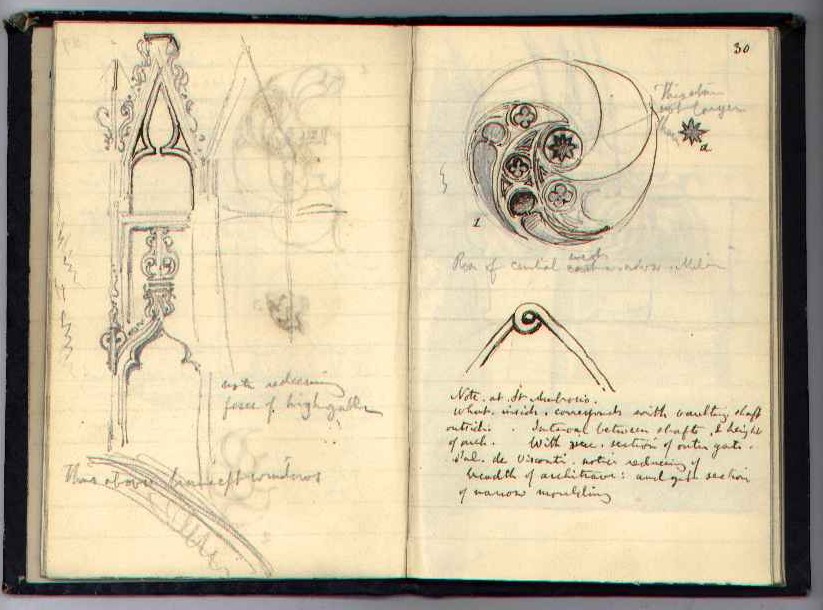 note redeeming
force of high gable
Thus above transept windows
30
This star
not larger
than
a
1
Rose of central
Note. at St Ambrosio.
What. inside. corresponds with vaulting shaft
outside. Interval between shafts, & height
of arch. With section of outer gate.
Pal. de Visconti. notice reducing of
breadth of architrave: and get section
of narrow moulding